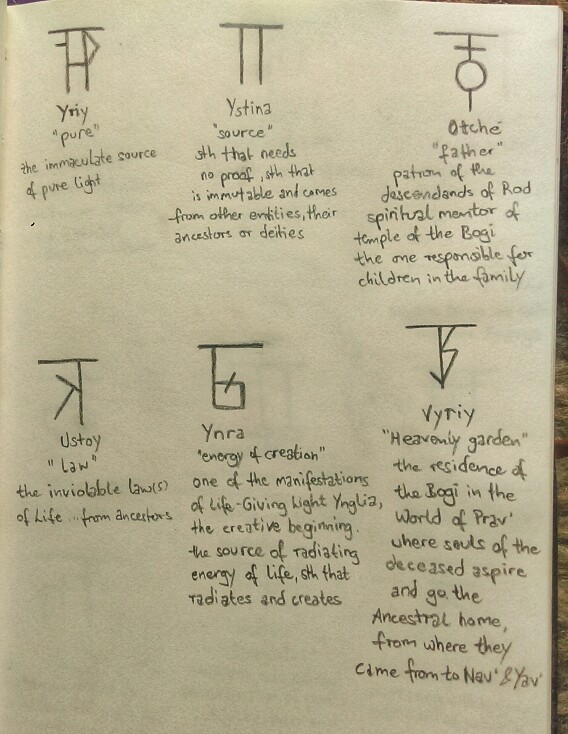 Yriy
"pure"
the immaculate source
of pure light
Ystina
"source"
sth that needs
no proof, sth that
is immutable and comes
from other entities, their
ancestors or deities
Otché
"father"
patron of the
descendands of Rod
spiritual mentor of
temple of the Bogi
the one responsible for
children in the family
Ustoy
"Law"
the inviolable law(s)
of Life...from ancestors
Ynra
"energy of creation"
one of the manifestations
of Life-Giving Light Ynglia,
the creative beginning.
the source of radiating
energy of life, sth that
radiates and creates
Vyriy
"Heavenly garden"
the residence of
the Bogi in the
World of Prav'
where souls of the
deceased aspire
and go, the
Ancestral home,
from where they
came from to Nav' & Yav'